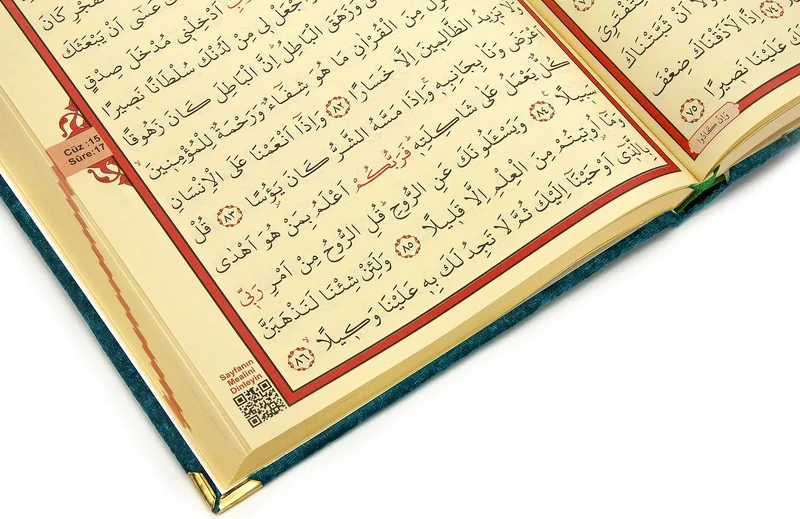 عَسٰٓى اَنْ يَبْعَثَكَ
اَدْخِلْن۪ي مُدْخَلَ صِدْقٍ
وَاجْعَلْ ل۪ي مِنْ لَدُنْكَ سُلْطَانًا نَص۪يرًا
وَزَهَقَ الْبَاطِلُ اِنَّ الْبَاطِلَ كَانَ زَهُوقًا
مِنَ الْقُرْاٰنِ مَا هُوَ شِفَٓاءٌ وَرَحْمَةٌ لِلْمُؤْمِن۪ينَ
وَلَا يَز۪يدُ الظَّالِم۪ينَ اِلَّا خَسَارًا ﴿٨٢﴾ وَاِذَٓا اَنْعَمْنَا عَلَى الْاِنْسَانِ
اَعْرَضَ وَنَاٰ بِجَانِبِه۪ وَاِذَا مَسَّهُ الشَّرُّ كَانَ يَؤُ۫سًا ﴿٨٣﴾ قُلْ
كُلٌّ يَعْمَلُ عَلٰى شَاكِلَتِه۪ فَرَبُّكُمْ اَعْلَمُ بِمَنْ هُوَ اَهْدٰى
سَب۪يلًا ﴿٨٤﴾ وَيَسْـَٔلُونَكَ عَنِ الرُّوحِ قُلِ الرُّوحُ مِنْ اَمْرِ رَبّ۪ي
وَمَٓا اُو۫ت۪يتُمْ مِنَ الْعِلْمِ اِلَّا قَل۪يلًا ﴿٨٥﴾ وَلَئِنْ شِئْنَا لَنَذْهَبَنَّ
بِالَّذ۪ٓي اَوْحَيْنَٓا اِلَيْكَ ثُمَّ لَا تَجِدُ لَكَ بِه۪ عَلَيْنَا وَك۪يلًا ﴿٨٦﴾
Cüz :15
Sûre:17
Sayfanın
Mealini
Dinleyin
وَلَوْلَٓا اَنْ ثَبَّتْنَاكَ
اِذًا لَاَذَقْنَاكَ ضِعْفَ
عَلَيْنَا نَص۪يرًا ﴿٧٥﴾
وَاِنْ كَادُوا